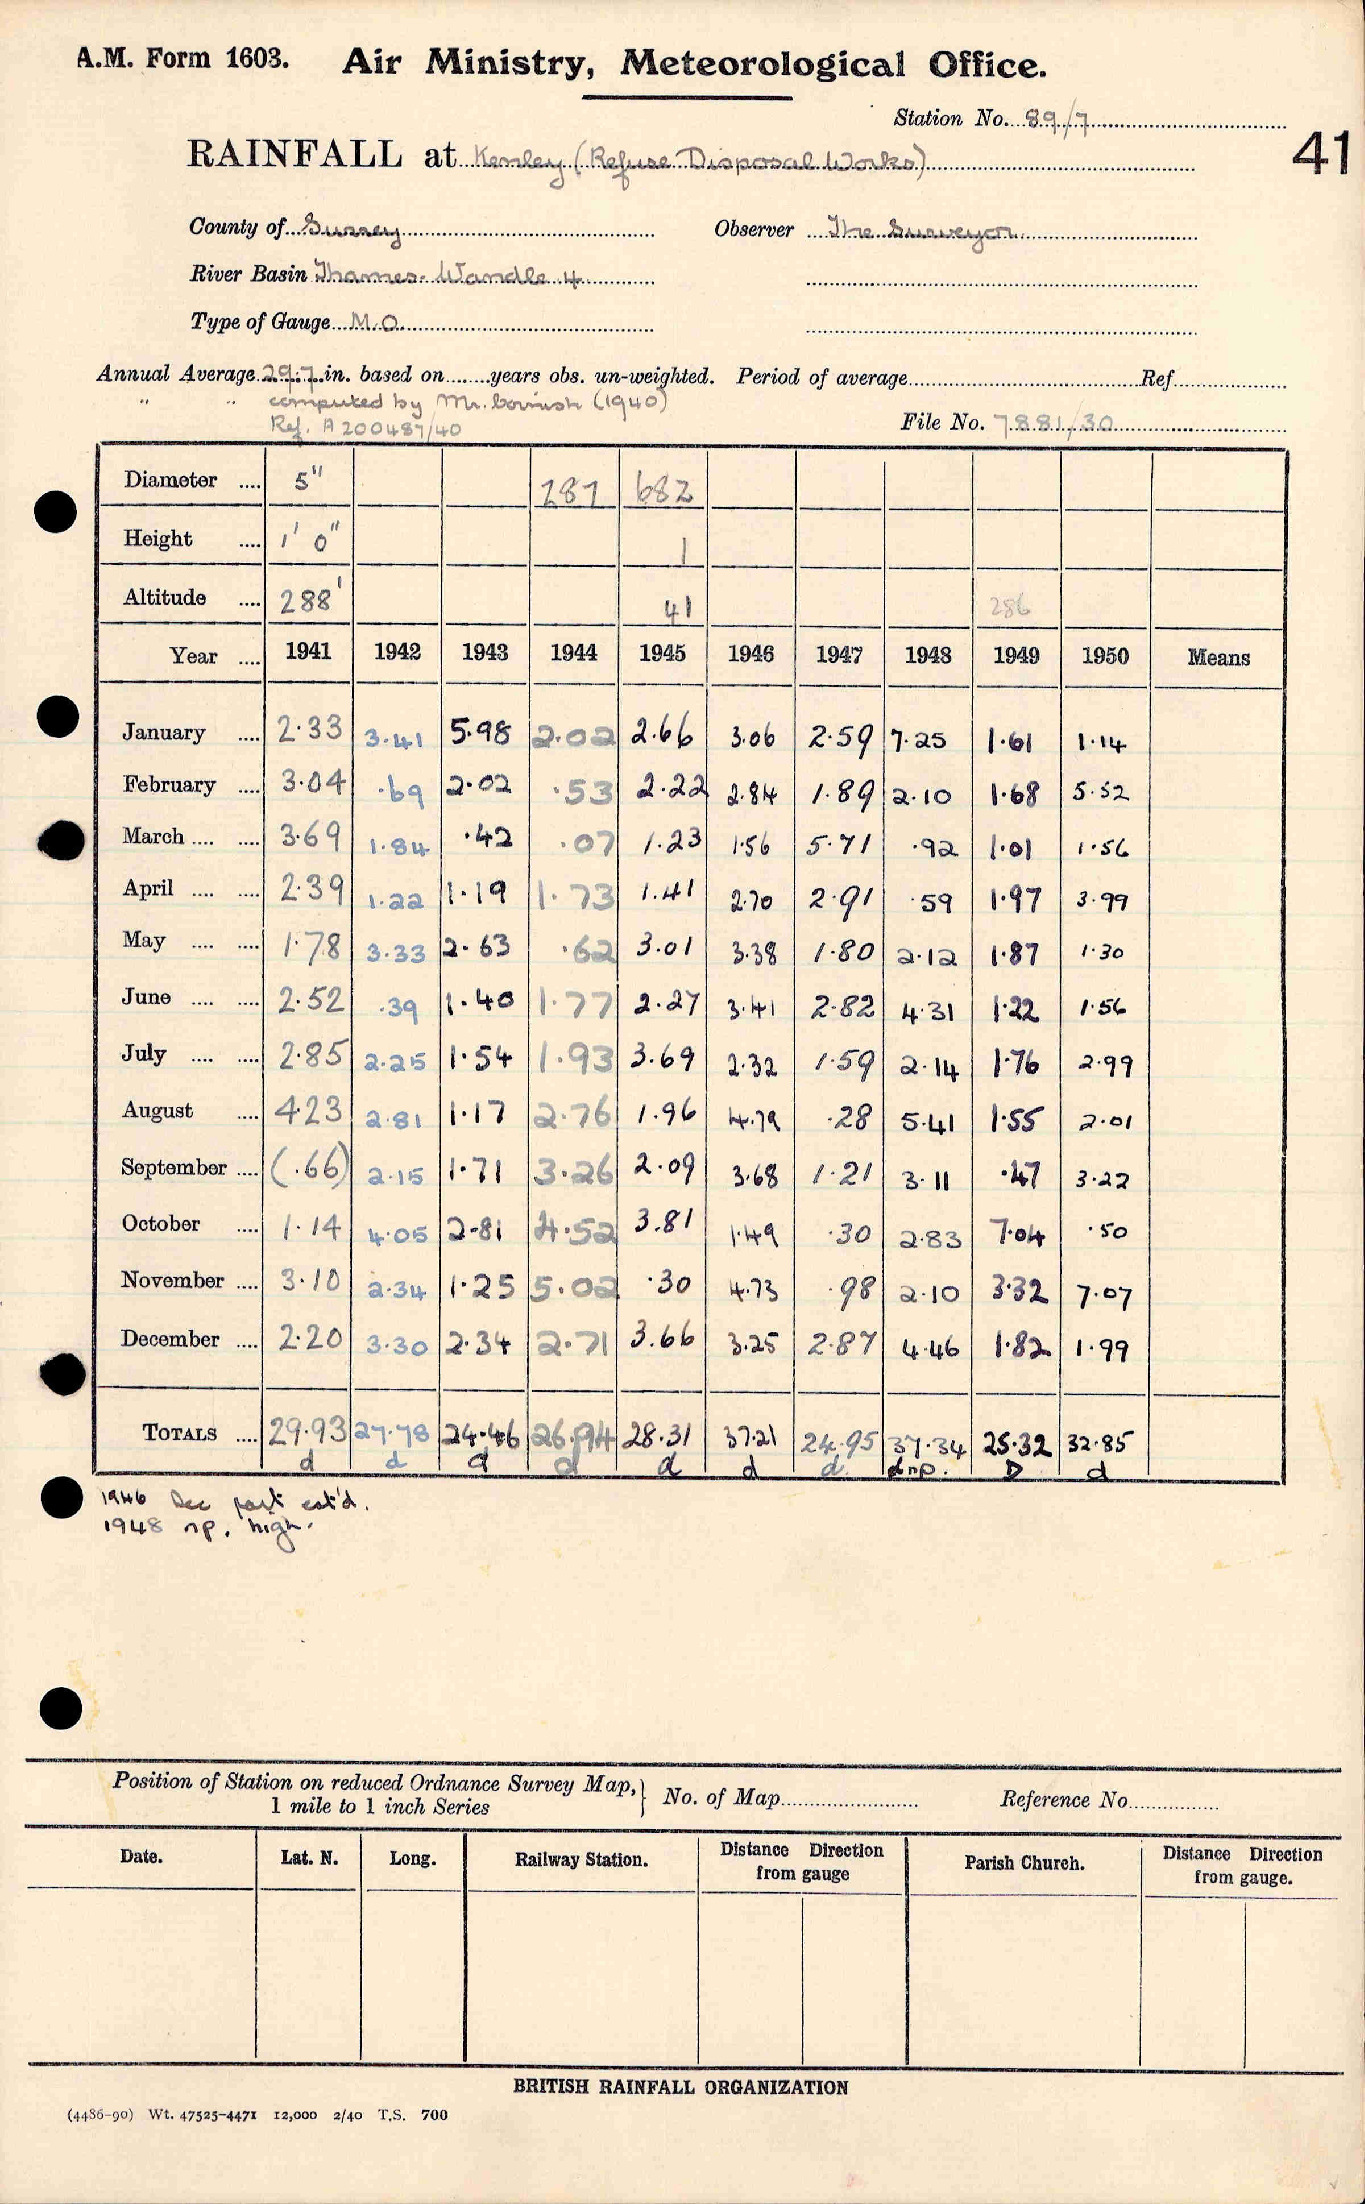 A.M. Form 1603. Air Ministry, Meteorological Office.
Station No. 89/7
41
RAINFALL at Kenley (Refuse Disposal Works)
County of Surrey Observer The Surveyor
River Basin Thames-Wandle 4
Type of Gauge M.O.
Annual Average 29.7 in. based on ........ years obs. un-weighted. Period of average ........ Ref ........
" " computed by Mr. Cornish (1940)
Ref. A200487/40 File No. 7881/30
Diameter .... 5" 287 682
Height .... 1' 0" 1
Altitude .... 288' 41 286
Year .... 1941 1942 1943 1944 1945 1946 1947 1948 1949 1950 Means
January .... 2.33 3.41 5.98 2.02 2.66 3.06 2.59 7.25 1.61 1.14
February .... 3.04 .69 2.02 .53 2.22 2.84 1.89 2.10 1.68 5.52
March .... .... 3.69 1.84 .42 .07 1.23 1.56 5.71 .92 1.01 1.56
April .... .... 2.39 1.22 1.19 1.73 1.41 2.70 2.91 .59 1.97 3.99
May .... .... 1.78 3.33 2.63 .62 3.01 3.38 1.80 2.12 1.87 1.30
June .... .... 2.52 .39 1.40 1.77 2.27 3.41 2.82 4.31 1.22 1.56
July .... .... 2.85 2.25 1.54 1.93 3.69 2.32 1.59 2.14 1.76 2.99
August .... 4.23 2.81 1.17 2.76 1.96 4.79 .28 5.41 1.55 2.01
September .... (.66) 2.15 1.71 3.26 2.09 3.68 1.21 3.11 .47 3.22
October .... 1.14 4.05 2.81 4.52 3.81 1.49 .30 2.83 7.04 .50
November .... 3.10 2.34 1.25 5.02 .30 4.73 .98 2.10 3.32 7.07
December .... 2.20 3.30 2.34 2.71 3.66 3.25 2.87 4.46 1.82 1.99
TOTALS .... 29.93 27.78 24.46 26.94 28.31 37.21 24.95 37.34 25.32 32.85
d d d d d d d dnp. D d
1946 Dec part est'd.
1948 np. high.
Position of Station on reduced Ordnance Survey Map, } No. of Map ........ Reference No. ........
1 mile to 1 inch Series
Date. Lat. N. Long. Railway Station. Distance Direction from gauge Parish Church. Distance Direction from gauge.
BRITISH RAINFALL ORGANIZATION
(4486-90) Wt. 47525-4471 12,000 2/40 T.S. 700